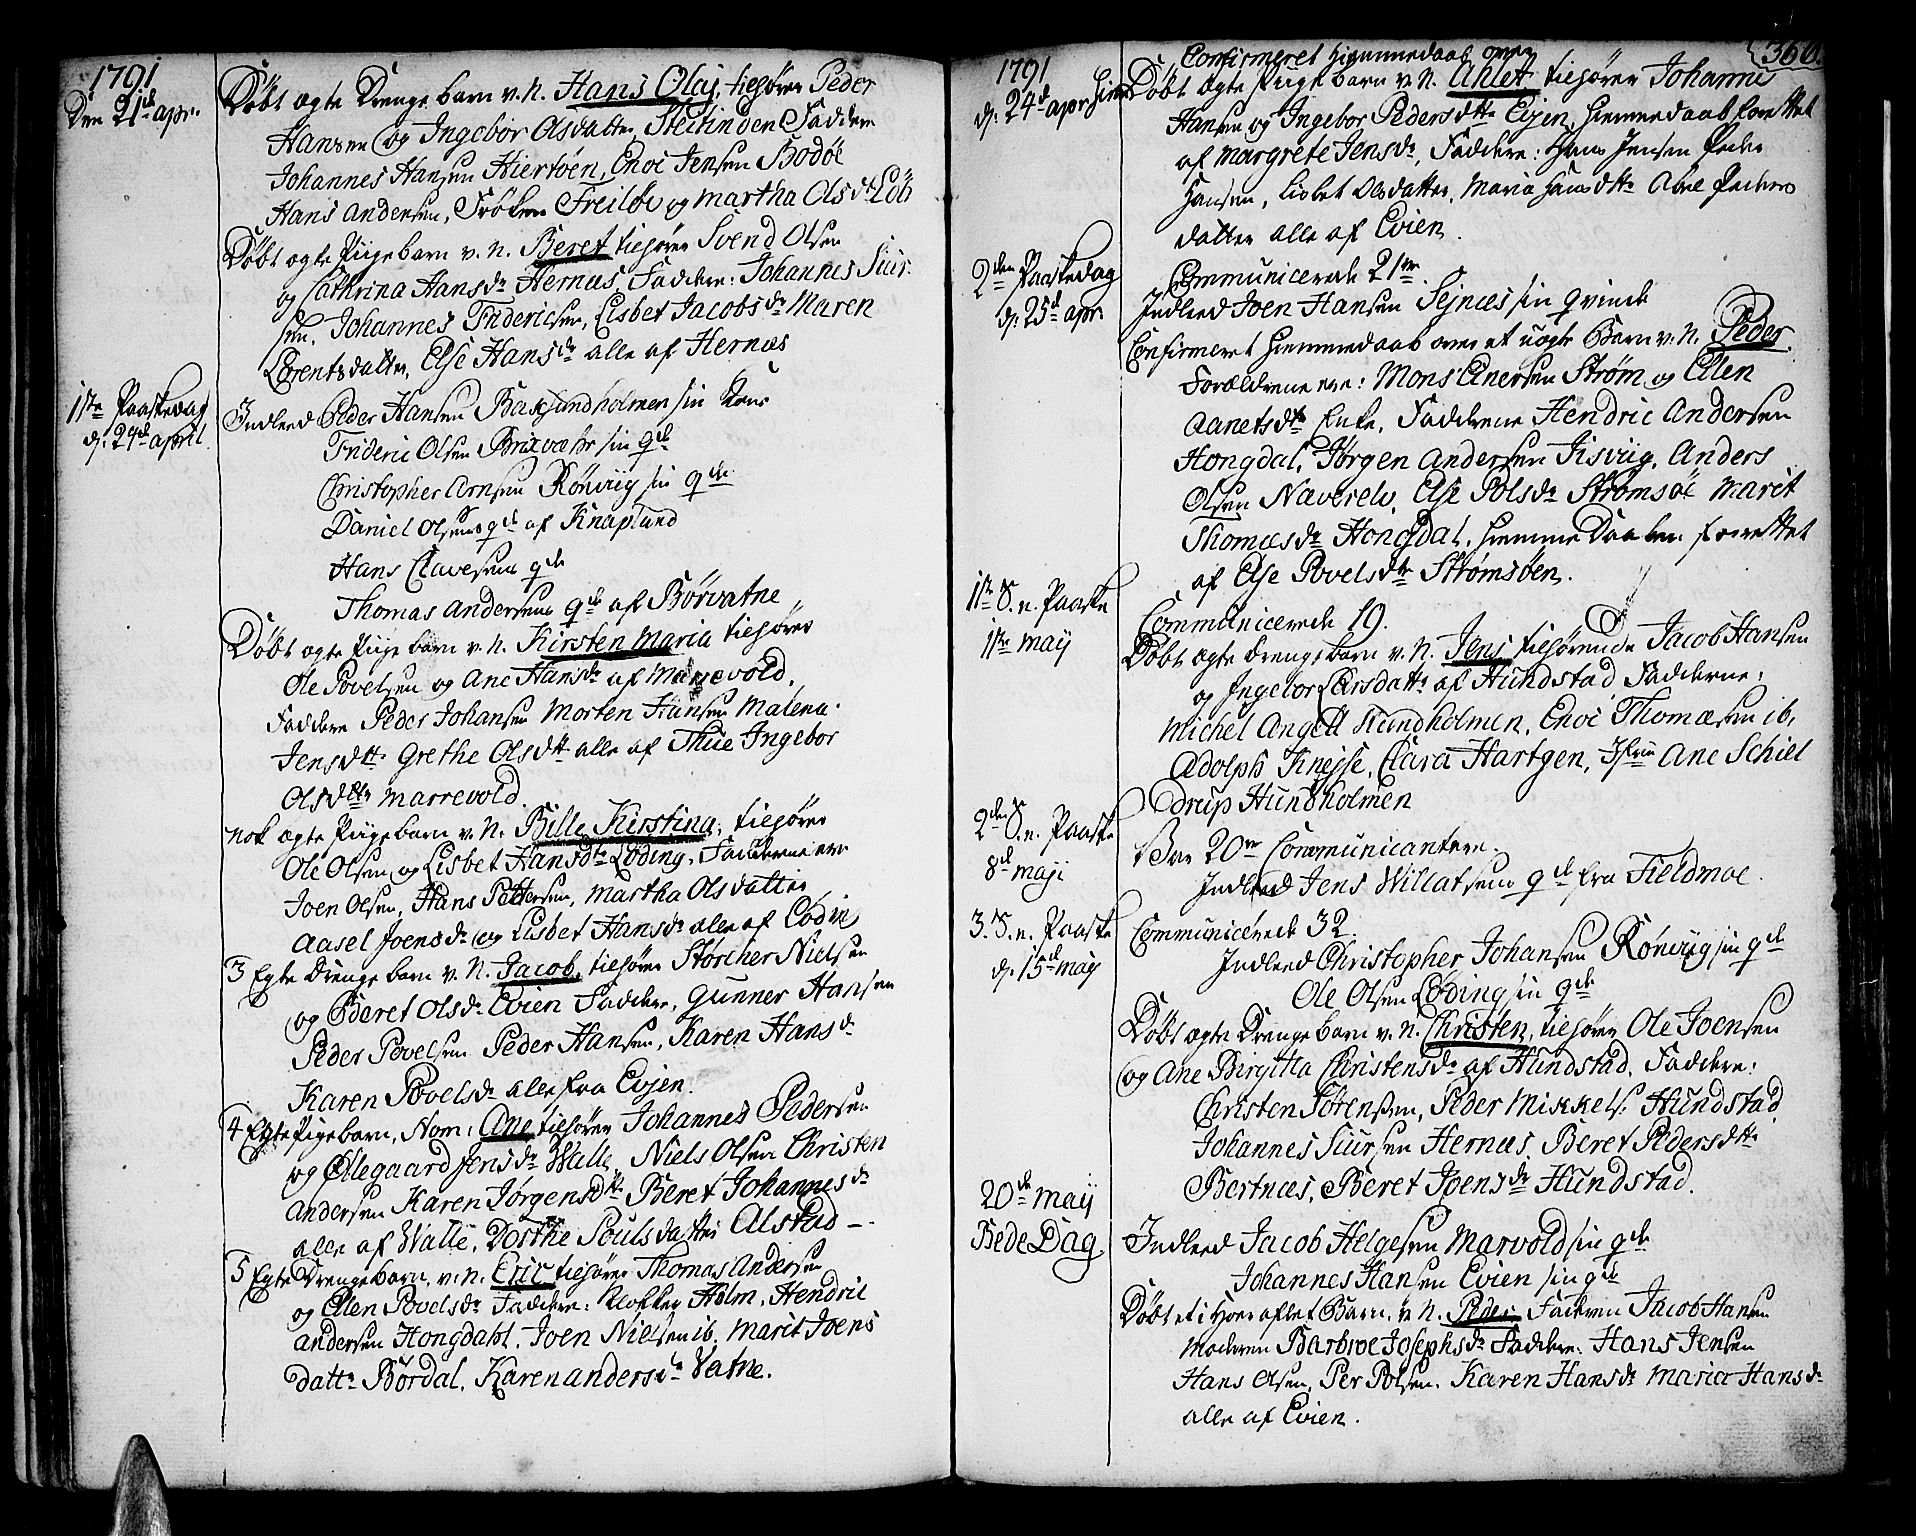 1791
Den 21d apr.
Døbt ægte Drenge barn v. N. Hans Olaj, tiehører Peder
Hansen og Ingebor Olsdatter, Steitinden Faddere
Johannes Hansen Hiertøen, Enoc Jensen Bodøe
Hans Andersen, Frøken Freiløv og Martha Olsdr
Døbt ægte Piigebarn v. N. Beret tiehører Svend Olsen
og Cathrina Hansdr Hernæs, Faddere: Johannes Siur-
sen, Johannes Fridericsen, Lisbet Jacobsdr Maren
Lorentsdatter, Else Hansdr alle af Hernæs
1ste Paaskedag
d. 24d april.
Indleed Peder Hansen sin Kone
Frideric Olsen sin qde
Christopher Arnsen Rønviig sin qde
Daniel Olsens qde af Knaplund
Hans Clavesens qde
Thomas Andersens qde af Børvatne
Døbt ægte Piige barn v. N. Kirsten Maria tiehører
Ole Povelsen og Ane Hansdr af Marrevold.
Faddere Peder Johansen Morten Hansen Malena
Jensdtr Grethe Olsdtr alle af Thue Ingebor
Olsdtr Marrevold.
nok ægte Piigebarn v. N. Bille Kirstina, tiehører
Ole Olsen og Lisbet Hansdr Løding. Fadderne ere
Joen Olsen, Hans Pettersen, Martha Olsdatter
Aasel Joensdr og Lisbet Hansdr alle af Lødin
3 Egte Drenge barn v. N. Jacob, tiehører Størcher Nielsen
og Beret Olsdr Evien Faddere, Gunner Hansen
Peder Povelsen Peder Hansen, Karen Hansdr
Karen Povelsdr alle fra Evjen.
4 Egte Pigebarn, Nom: Ane tiehører Johannes Pedersen
og Øllegaard Jensdr Walle, Niels Olsen Christen
Andersen Karen Jørgensdtr Beret Johannesdr
alle af Walle, Dorthe Poulsdatter Alstad -.
5 Egte Drengebarn, v. n. Eric tiehører Thomas Andersen
og Elen Povelsdr Faddere: Klokker Holm, Hendric
Andersen Hongdahl, Joen Nielsen ib. Marit Joens
dattr Børdal, Karen Andersdr Vatne.
366.
1791
d. 24d apr.
Confirmeret Hiemmedaab over
Døbt ægte Piige barn v. N. Ahlet tiehører Johannes
Hansen og Ingebor Pedersdtr Evjen, Hiemmedaab forrettet
af Margrete Jensdr, Faddere: Hans Jensen Peder
Hansen, Lisbet Olsdatter, Maria Hansdtr Ahne Peders
datter alle af Evien.
Communicerede 21ve
2den Paaskedag
d. 25d apr.
Indleed Joen Hansen Sejnæs sin qvinde
Confirmeret Hiemmedaab over et uægte Barn v. N. Peder
Forældrene ere: Mons Enersen Strøm og Elen
Aanetsdtr Enke, Fadderne Hendric Andersen
Hongdal, Jørgen Andersen Jisviig, Anders
Olsen Naverelv, Else Polsdr Strømsøe Marit
Thomasdr Hongdal, Hiemme Daaben forrettet
af Else Povelsdtr Strømsøen.
1ste S. n. Paaske
1ste may
Communicerede 19.
Døbt ægte drengebarn v. N. Jens tiehørende Jacob Hansen
og Ingebor Larsdattr af Hundstad Fadderne:
Michel Angell Hundholmen, Enoc Thomæsen ib,
Adolph Jinejse, Clara Hartgen, Jfrue Ane Schiel
drup Hundholmen
2den S. n. Paaske
8d maji
Var 20ve Communicantere.
Indleed Jens Willatsens qde fra Fieldmoe.
3. S. n. Paaske
d. 15d may
Communicerede 32.
Indleed Christopher Johansen Rønviig sin qde
Ole Olsen Løding sin qde
Døbt ægte Drengebarn v. n. Christen, tiehører Ole Joensen
og Ane Birgitta Christensdr af Hundstad. Faddere:
Christen Sørensen, Peder Mikkels: Hundstad
Johannes Siursen Hernæs, Beret Pedersdtr
Bertnæs, Beret Joensdr Hundstad.
20de Maij
Bede Dag
Indleed Jacob Helgesen Marvold sin qde
Johannes Hansen Evien sin qde
Døbt et i Hoer aflet Barn, v. N. Peder Faderen Jacob Hansen
Moderen Barbroe Josephsdr Faddere: Hans Jensen
Hans Olsen, Per Polsen, Karen Hansdr Maria Hansdr
alle af Evien.